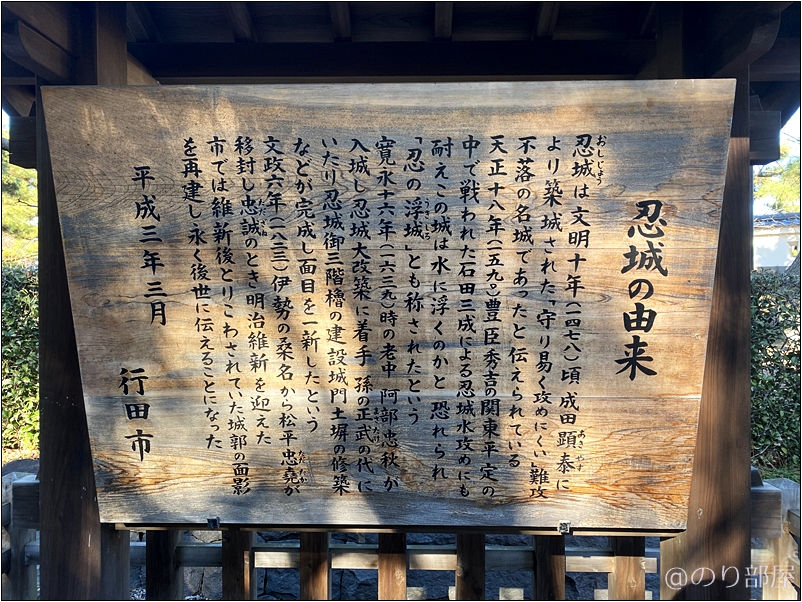 忍城の由来
忍城は文明十年(一四七八)頃成田顕泰に
おしじょう
あきやす
より築城された「守り易く攻めにくい難攻
不落の名城であったと伝えられている
天正十八年(一五九〇)豊臣秀吉の関東平定の
中で戦われた石田三成による忍城水攻めにも
耐えこの城は水に浮くのかと恐れられ
「忍の浮城」とも称されたという
うきしろ
寛永十六年(一六三九)時の老中 阿部忠秋が
入城し忍城大改築に着手 孫の正武の代に
まさたけ
いたり忍城御三階櫓の建設城門土塀の修築
などが完成し面目を一新したという
文政六年(一八二三)伊勢の桑名から松平忠堯が
ただたか
移封し忠誠のとき明治維新を迎えた
市では維新後とりこわされていた城郭の面影
を再建し永く後世に伝えることになった
平成三年三月
行田市
@のり部屋